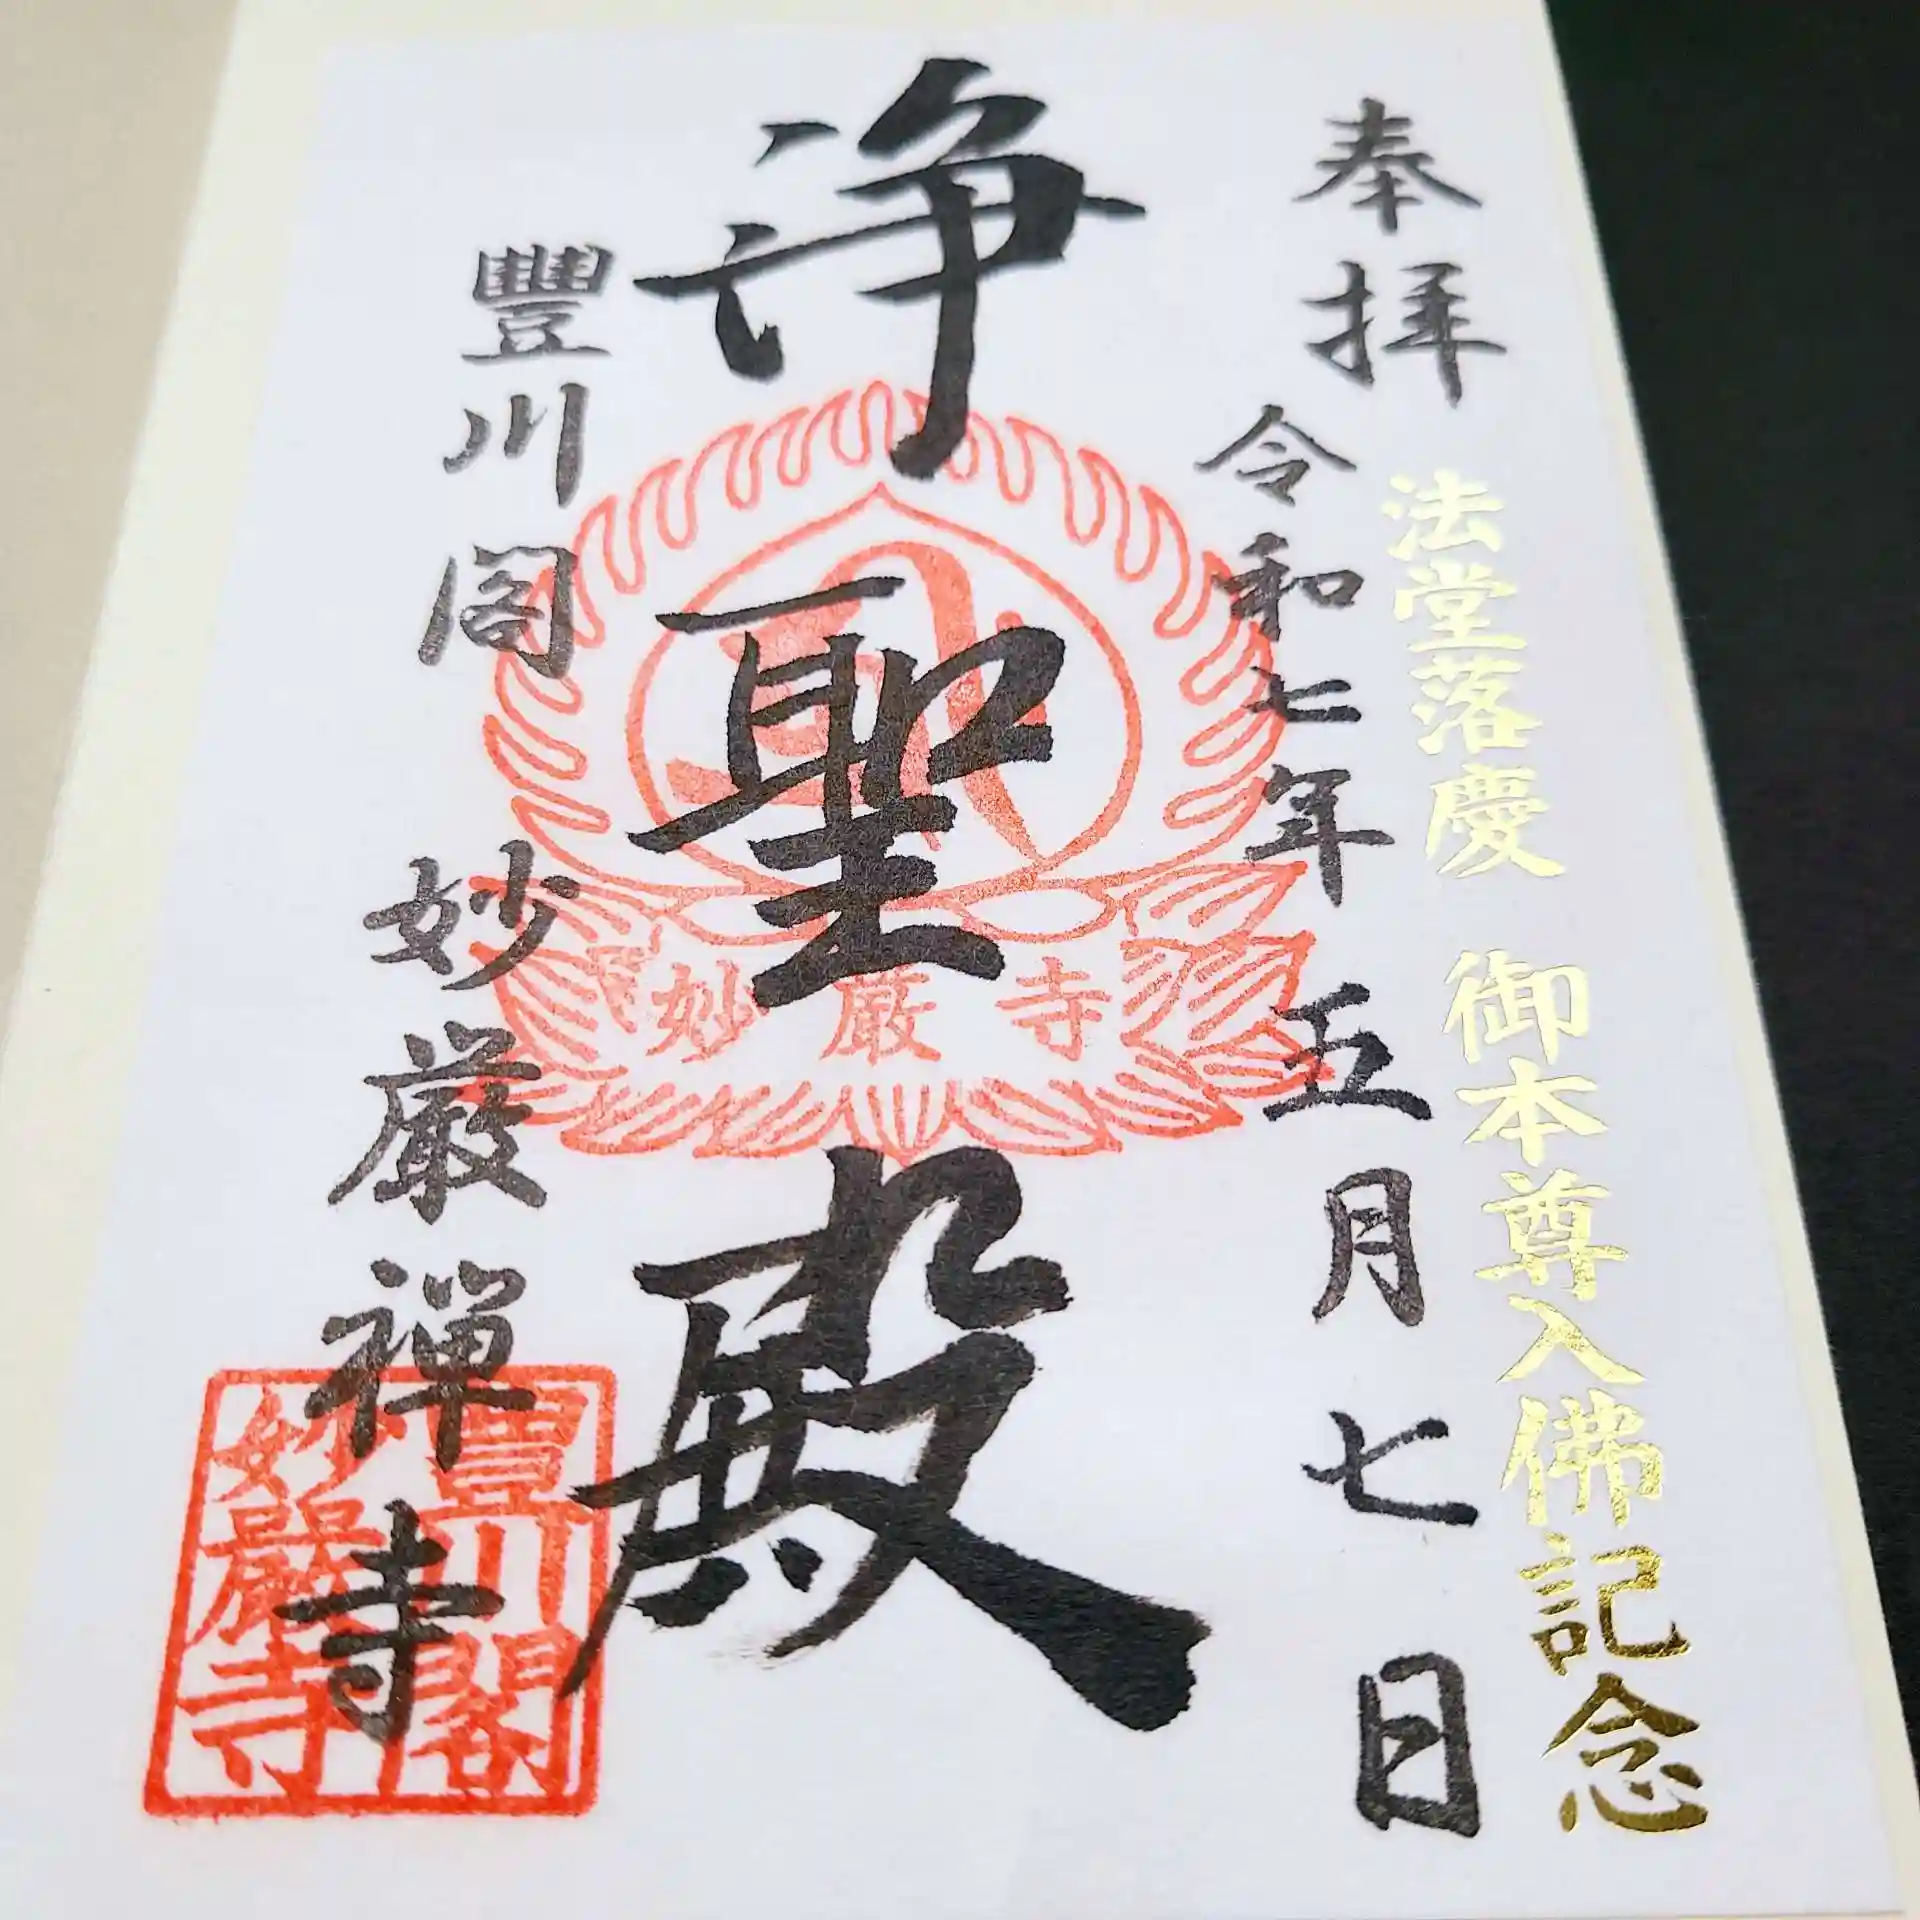 奉拝
法堂落慶 御本尊入佛記念
令和七年五月七日
浄聖殿
妙厳寺
豐川閣 妙厳禅寺
豐川閣
妙嚴寺